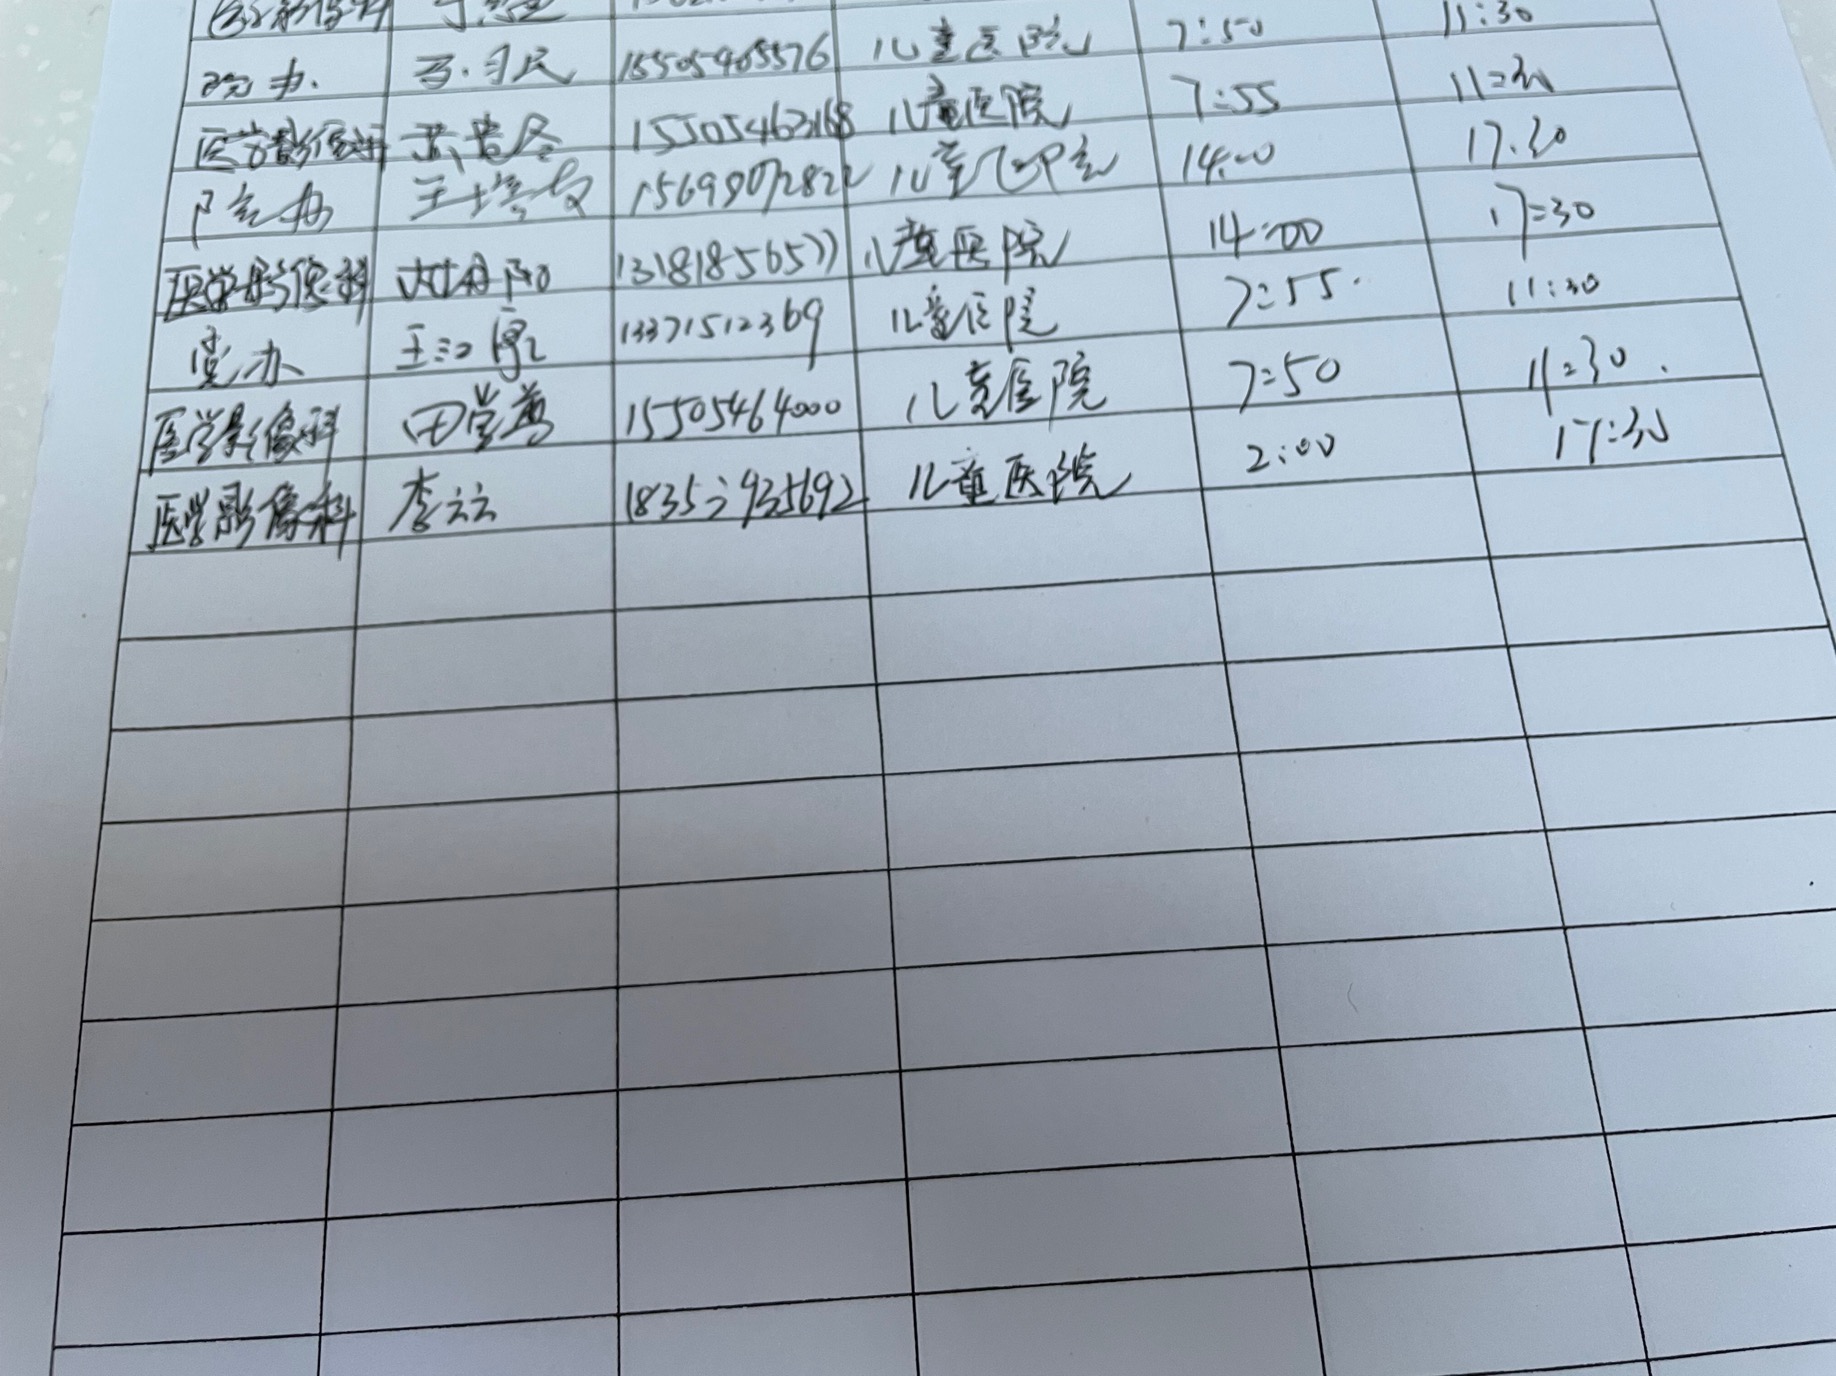 11:30
院办. 马·习民 15505465576 儿童医院 7:50
医学影像科 15505463168 儿童医院 7:55 11:30
院办 王培 15698072822 儿童医院 14:00 17:30
医学影像科 13181856577 儿童医院 14:00 17:30
党办 王 13371512369 儿童医院 7:55 11:30
医学影像科 田堂 15505464000 儿童医院 7:50 11:30
医学影像科 李云 儿童医院 2:00 17:30